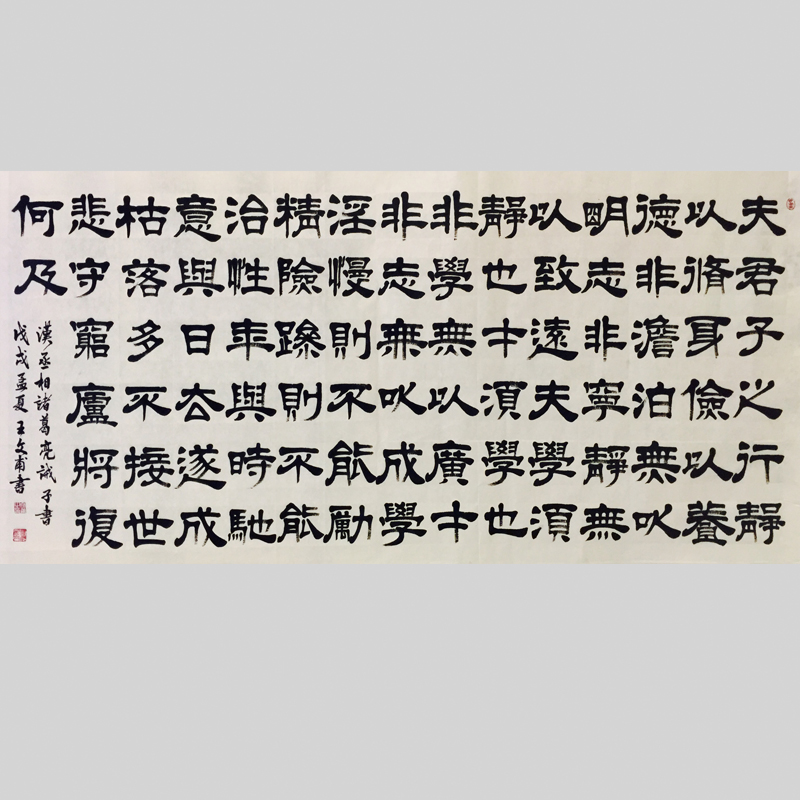 夫君子之行靜
以脩身儉以養
德非澹泊無以
明志非寧靜無
以致遠夫學須
靜也才須學也
非學無以廣才
非志無以成學
淫慢則不能勵
精險躁則不能
治性年與時馳
意與日去遂成
枯落多不接世
悲守窮廬將復
何及
漢丞相諸葛亮誡子書
戊戌孟夏王文甫書